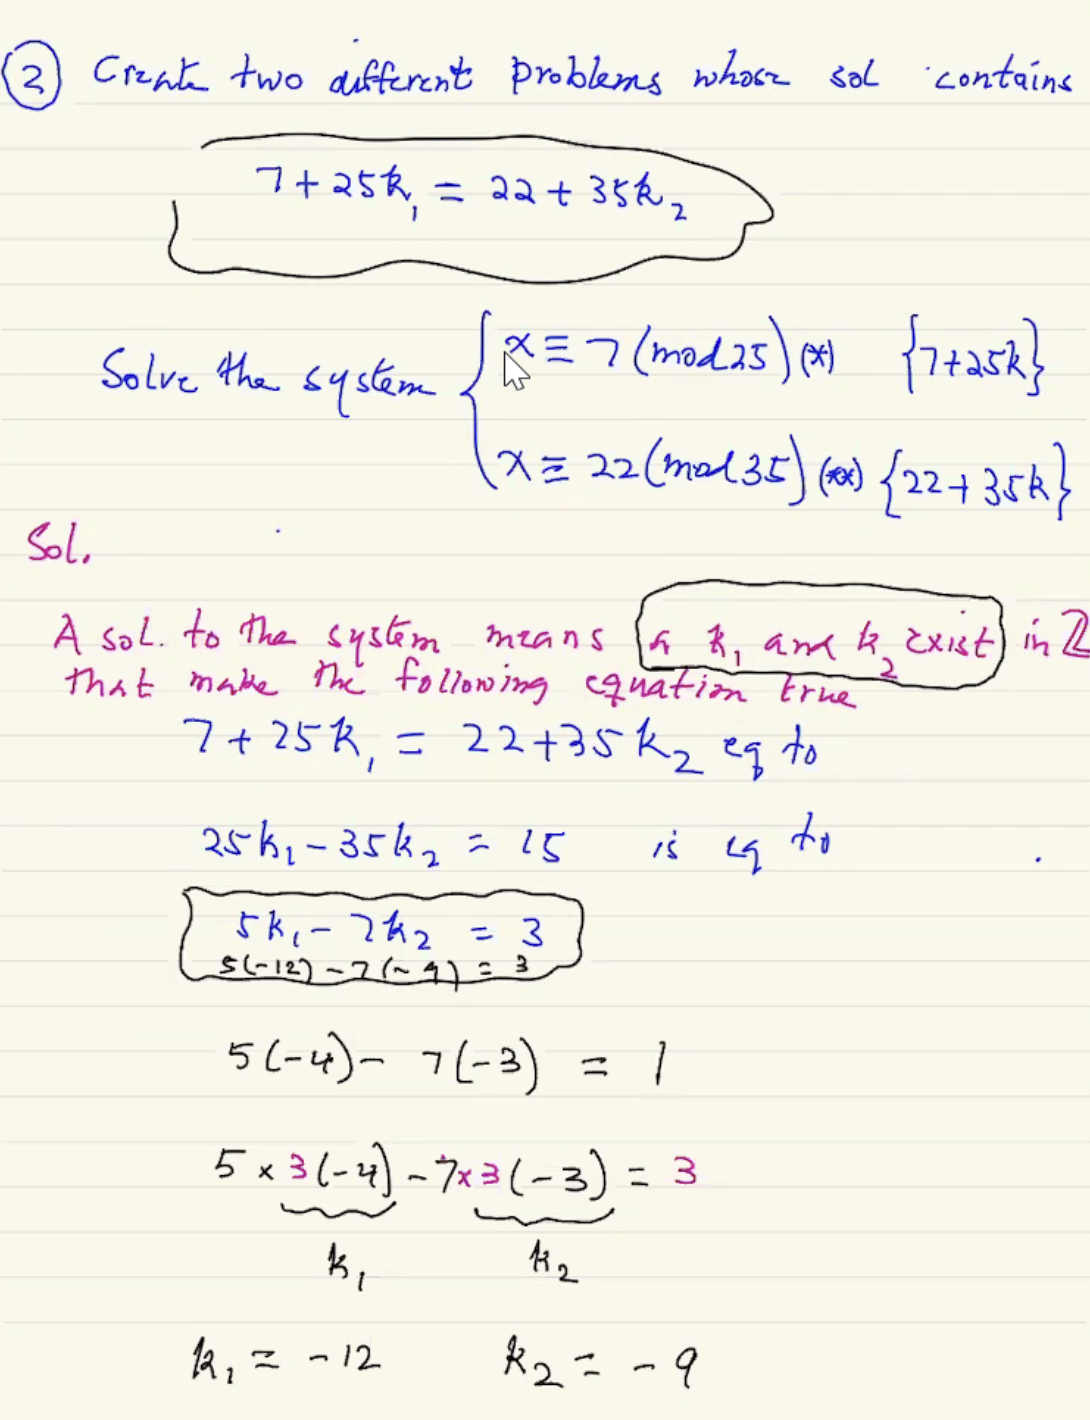 ② Create two different problems whose sol contains
7 + 25k₁ = 22 + 35k₂
Solve the system { x ≡ 7 (mod 25) (*) {7+25k}
x ≡ 22 (mod 35) (**) {22+35k}
Sol.
A sol. to the system means a k₁ and k₂ exist in ℤ
that make the following equation true
7 + 25k₁ = 22 + 35k₂ eq to
25k₁ - 35k₂ = 15 is eq to
5k₁ - 7k₂ = 3
5(-12) - 7(-9) = 3
5(-4) - 7(-3) = 1
5 × 3(-4) - 7 × 3(-3) = 3
k₁ k₂
k₁ = -12 k₂ = -9